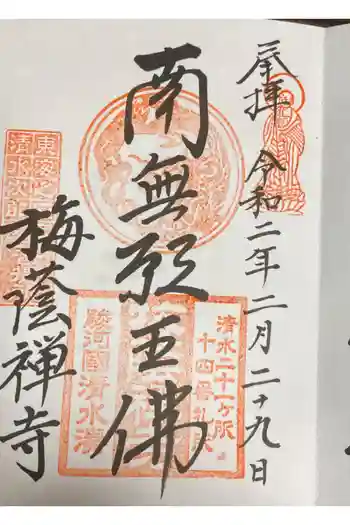 奉拝 令和二年二月二十九日
南無願王佛
梅蔭禅寺
清水二十一ヶ所
十四番札所
駿河國清水湊
清水次郎